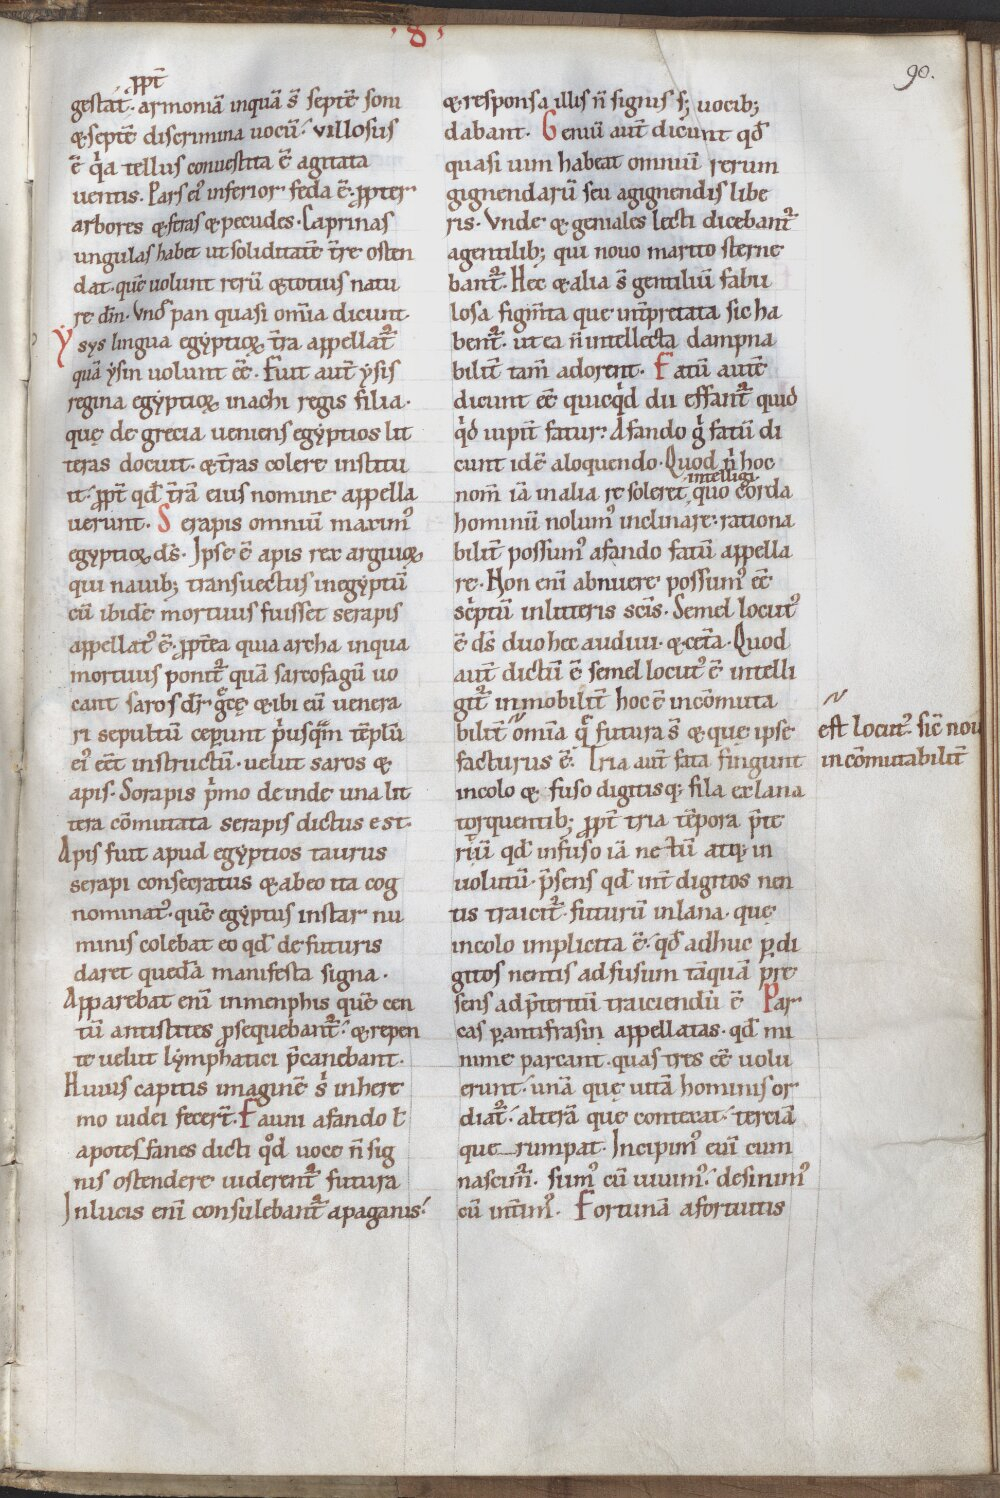 ·8·
90.
ꝓpt̄
gestat̄. armoniā inquā s̄ septē soni
& septē discrimina uocū. villosus
ē q'a tellus conuestita ē agitata
uentis. Pars ei' inferior feda ē. ꝓpter
arbores & feras & pecudes. Caprinas
ungulas habet ut soliditatē t̄re osten
dat. quē uolunt rerū & totius natu
re dm̄. Vnd' pan quasi om̄ia dicunt.
Ysys lingua egẏptioꝝ t̄ra appellat᷑
quā ẏsin uolunt eē. Fuit aut̄ ẏsis
regina egẏptioꝝ inachi regis filia.
quę de grecia ueniens egẏptios lit
teras docuit. & t̄ras colere institu
it. ꝓpt̄ qd̄ t̄rā eius nomine appella
uerunt. Serapis omniū maxim'
egyptioꝝ ds̄. Ipse ē apis rex argiuoꝝ
qui nauib; transuectus in egẏptū
cū ibidē mortuus fuisset serapis
appellat' ē. ꝓpt̄ea quia archa in qua
mortuus ponit᷑ quā sarcofagū uo
cant saros dr̄ gͨcę & ibi eū uenera
ri sepultū ceperunt p'usqᷓm tēplū
ei' eēt instructū. uelut saros &
apis. Sorapis p'mo deinde una lit
tera cōmutata serapis dictus est.
Apis fuit apud egẏptios taurus
serapi consecratus & ab eo ita cog
nominat'. quē egẏptus instar nu
minis colebat eo qd̄ de futuris
daret quedā manifesta signa.
Apparebat eni in menphis quē cen
tū antistites ꝓsequebant᷑. & repen
te uelut lẏmphatici p̄canebant.
Huius capitis imaginē s' in here
mo iudei fecer̄t. Fauni a fando ł
apotesfanes dicti qd̄ uoce n̄ sig
nis ostendere uiderent᷑ futura
In lucis eni consulebant᷑ a paganis.
& responsa illis n̄ signis s; uocib;
dabant. Geniū aut̄ dicunt qd̄
quasi uim habeat omniū rerum
gignendarū seu a gignendis libe
ris. Vnde & geniales lecti dicebant᷑
a gentilib; qui nouo marito sterne
bant᷑. Hec & alia s̄ gentiliū fabu
losa figm̄ta que int̄pretata sic ha
bent᷑. ut ea n̄ intellecta dampna
bilit̄ tam̄ adorent. Fatū autē
dicunt eē quicq'd dii effant᷑ quid
q'd iupit̄ fatur. A fando g' fatū di
cunt idē a loquendo. Quod n' hoc
intelligi
nom̄ iā in alia re soleret quo corda
hominū nolum' inclinare. rationa
bilit̄ possum' a fando fatū appella
re. Non eni abnuere possum' eē
sc'ptū in litteris sc̄is. Semel locut'
ē ds̄ duo hec audiui. & cet̄a. Quod
aut̄ dictū ē semel locut' ē intelli
git᷑ inmobilit̄ hoc ē incōmuta
bilit̄ om̄ia qͤ futura s̄ & que ipse
facturus ē. Tria aut̄ fata fingunt
in colo & fuso digitisq; fila ex lana
torquentib; ꝓpt̄ tria tēpora p̄te
riū qd̄ in fuso iā netū atq; in
uolutū. p̄sens qd̄ int̄ digitos nen
tis traicit᷑. futurū in lana. que
in colo implicita ē. qd̄ adhuc ꝑ di
gitos nentis ad fusum tāquā pre
sens ad p̄teritū traiciendū ē Par
cas ꝑ antifrasin appellatas. qd̄ mi
nime parcant. quas tres eē uolu
erunt. unā que uitā hominis or
diat᷑. alterā que contexat. terciā
que rumpat. Incipim' eni cum
nascim᷑. sum' cū uiuim'. desinim'
cū int̄im'. Fortunā a fortuitis
est locut'. sic̄ nou
incōmutabilit̄